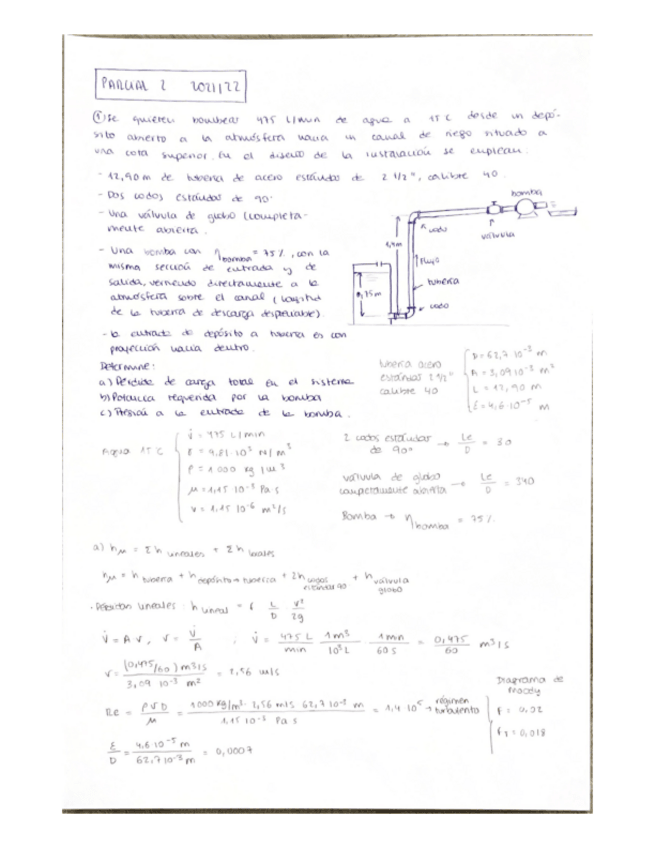 PARCIAL 2 2021/22
① Se quieren bombear 475 L/min de agua a 15°C desde un depó-
sito abierto a la atmósfera hacia un canal de riego situado a
una cota superior. En el diseño de la instalación se emplean:
- 12,90 m de tubería de acero estándar de 2 1/2", calibre 40.
- Dos codos estándar de 90°
- Una válvula de globo (completa-
mente abierta.
- Una bomba con η bomba = 75%, con la
misma sección de entrada y de
salida, vertiendo directamente a la
atmósfera sobre el canal (longitud
de la tubería de descarga despreciable).
- La entrada de depósito a tubería es con
proyección hacia dentro.
bomba
codo
válvula
1,4m
flujo
0,75m
tubería
codo
Determine:
a) Pérdida de carga total en el sistema
b) Potencia requerida por la bomba
c) Presión a la entrada de la bomba.
tubería acero
estándar 2 1/2"
calibre 40
D = 62,7·10⁻³ m
A = 3,09·10⁻³ m²
L = 12,90 m
ε = 4,6·10⁻⁵ m
Agua 15°C
V̇ = 475 L/min
γ = 9,81·10³ N/m³
ρ = 1000 kg/m³
μ = 1,15·10⁻³ Pa·s
ν = 1,15·10⁻⁶ m²/s
2 codos estándar de 90° → Le/D = 30
válvula de globo completamente abierta → Le/D = 340
Bomba → η bomba = 75%
a) hM = Σh lineales + Σh locales
hM = h tubería + h depósito→tubería + 2h codos estándar 90 + h válvula globo
· Pérdidas lineales: h lineal = f L/D · v²/2g
V̇ = A v, v = V̇/A ; V̇ = 475 L/min · 1m³/10³L · 1min/60s = 0,475/60 m³/s
v = (0,475/60) m³/s / 3,09·10⁻³ m² = 2,56 m/s
Re = ρVD/μ = 1000 kg/m³ · 2,56 m/s · 62,7·10⁻³ m / 1,15·10⁻³ Pa·s = 1,4·10⁵ → régimen turbulento
Diagrama de
Moody
f = 0,02
fT = 0,018
ε/D = 4,6·10⁻⁵ m / 62,7·10⁻³ m = 0,0007